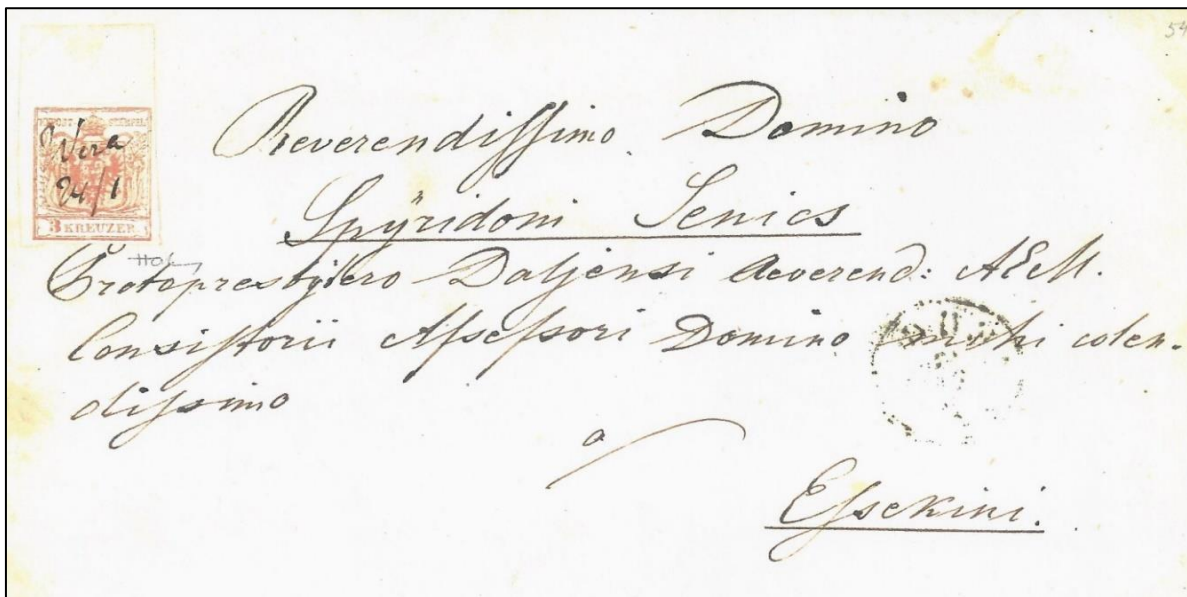 54
POST STEMPEL
Vera
24/1
3 KREUZER
Reverendissimo Domino
Spÿridoni Senics
Protopresbÿtero Daljensi Reverend: A E M.
Consistorii Assessori Domino mihi colen-
dissimo
a
Essekini.